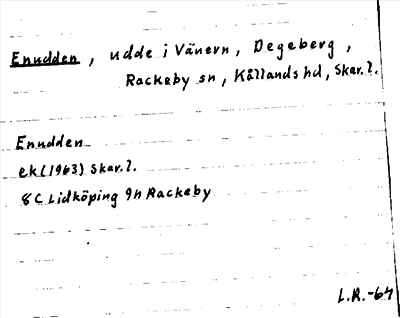 Enudden, udde i Vänern, Degeberg,
Rackeby sn, Kållands hd, Skar.l.
Enudden
ek (1963) Skar.l.
8C Lidköping 9h Rackeby
L.R.-64